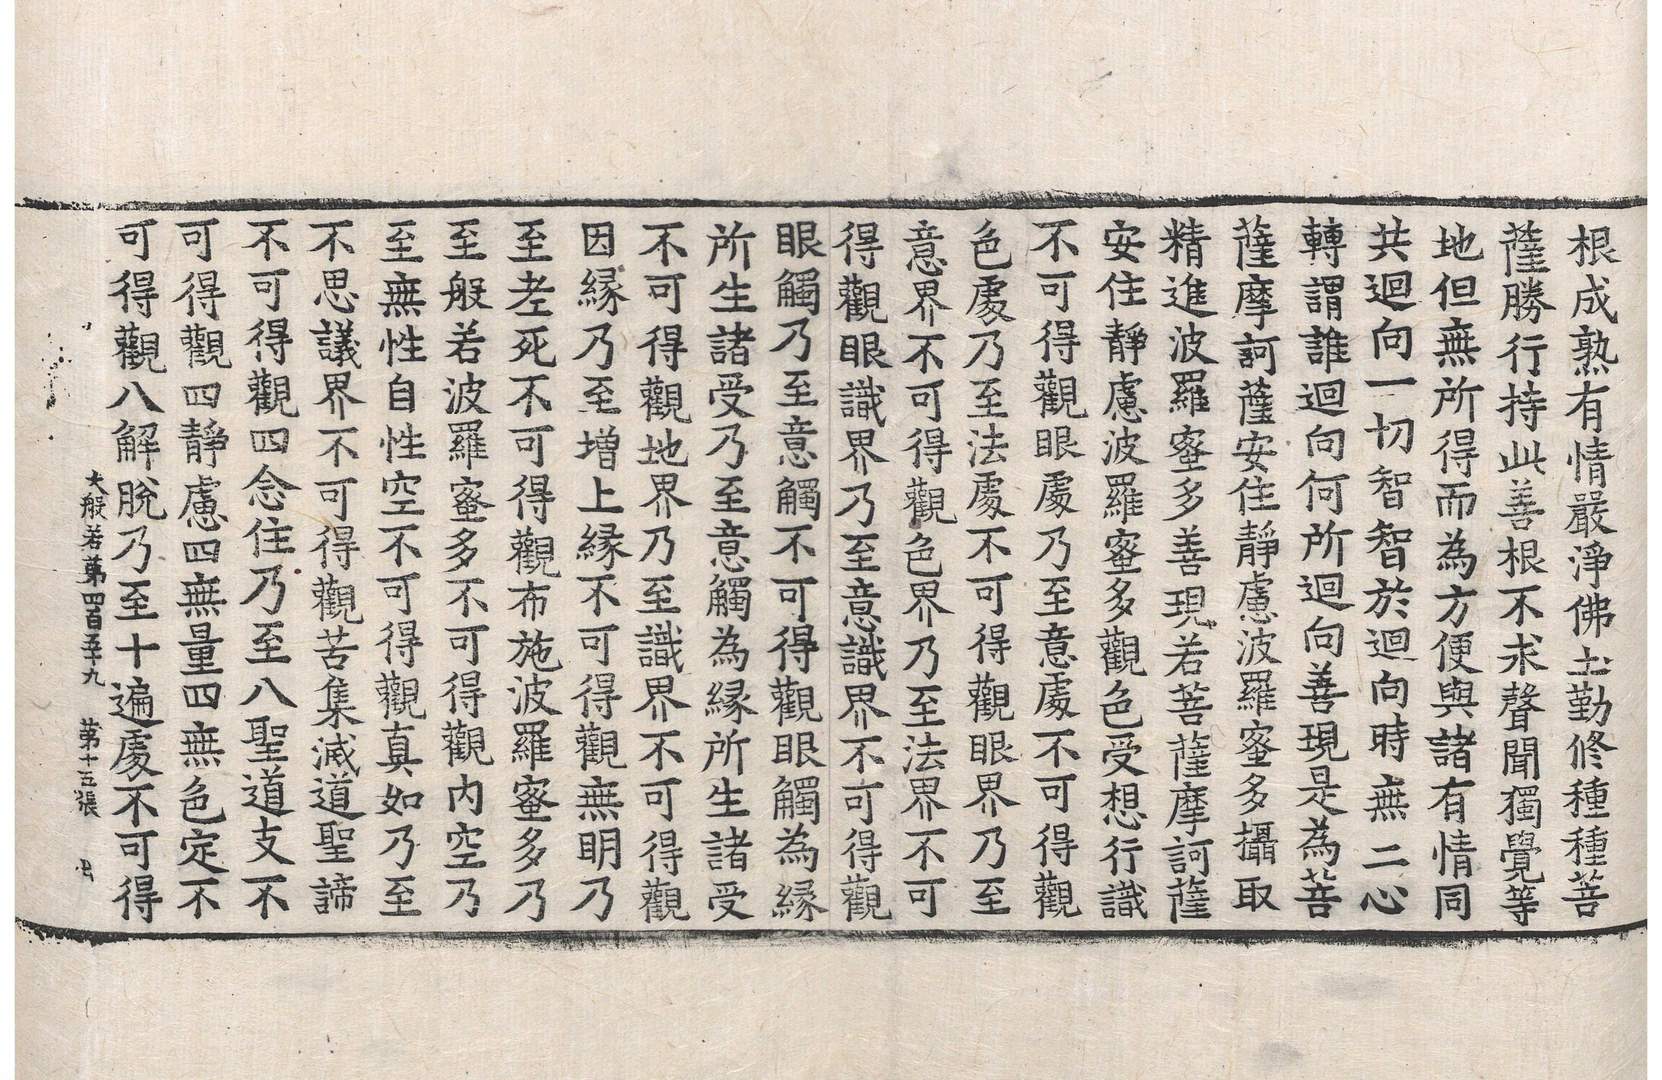 根成熟有情嚴淨佛土勤修種種菩
薩勝行持此善根不求聲聞獨覺等
地但無所得而為方便與諸有情同
共迴向一切智智於迴向時無二心
轉謂誰迴向何所迴向善現是為菩
薩摩訶薩安住靜慮波羅蜜多攝取
精進波羅蜜多善現若菩薩摩訶薩
安住靜慮波羅蜜多觀色受想行識
不可得觀眼處乃至意處不可得觀
色處乃至法處不可得觀眼界乃至
意界不可得觀色界乃至法界不可
得觀眼識界乃至意識界不可得觀
眼觸乃至意觸不可得觀眼觸為緣
所生諸受乃至意觸為緣所生諸受
不可得觀地界乃至識界不可得觀
因緣乃至增上緣不可得觀無明乃
至老死不可得觀布施波羅蜜多乃
至般若波羅蜜多不可得觀內空乃
至無性自性空不可得觀真如乃至
不思議界不可得觀苦集滅道聖諦
不可得觀四念住乃至八聖道支不
可得觀四靜慮四無量四無色定不
可得觀八解脫乃至十遍處不可得
大般若第四百五十九 第十五張